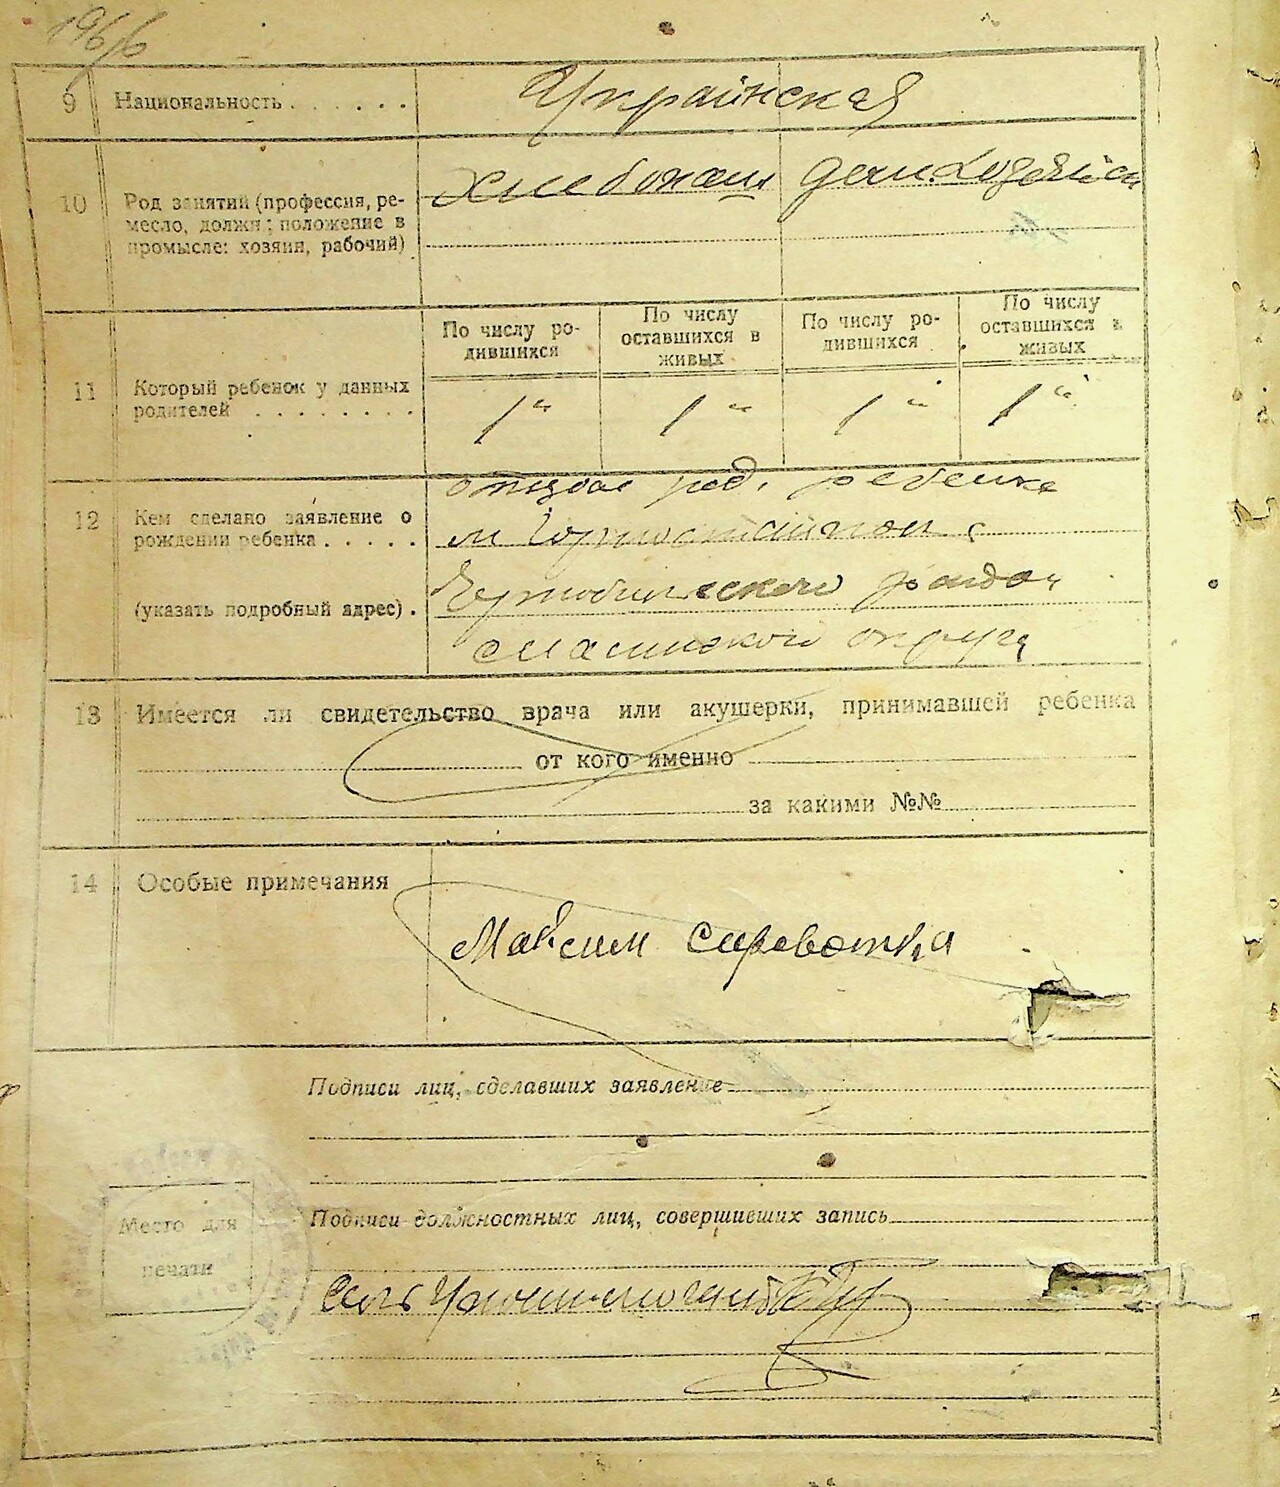 196/6
9 Национальность . . . . . . Украинская
10 Род занятий (профессия, ре-
месло, должн; положение в
промысле: хозяин, рабочий)
хлебопаш дом.хозяйка
По числу ро-
дившихся
По числу
оставшихся в
живых
По числу ро-
дившихся
По числу
оставшихся в
живых
11 Который ребенок у данных
родителей . . . . . . . .
1" 1" 1" 1"
12 Кем сделано заявление о
рождении ребенка . . . . .
(указать подробный адрес) .
отцом род. ребенка
м Горностайпол
Чернобыльского района
округа
13 Имеется ли свидетельство врача или акушерки, принимавшей ребенка
от кого именно
за какими №№
14 Особые примечания
Максим Сироватка
Подписи лиц, сделавших заявление
Место для
печати
Подписи должностных лиц, совершивших запись